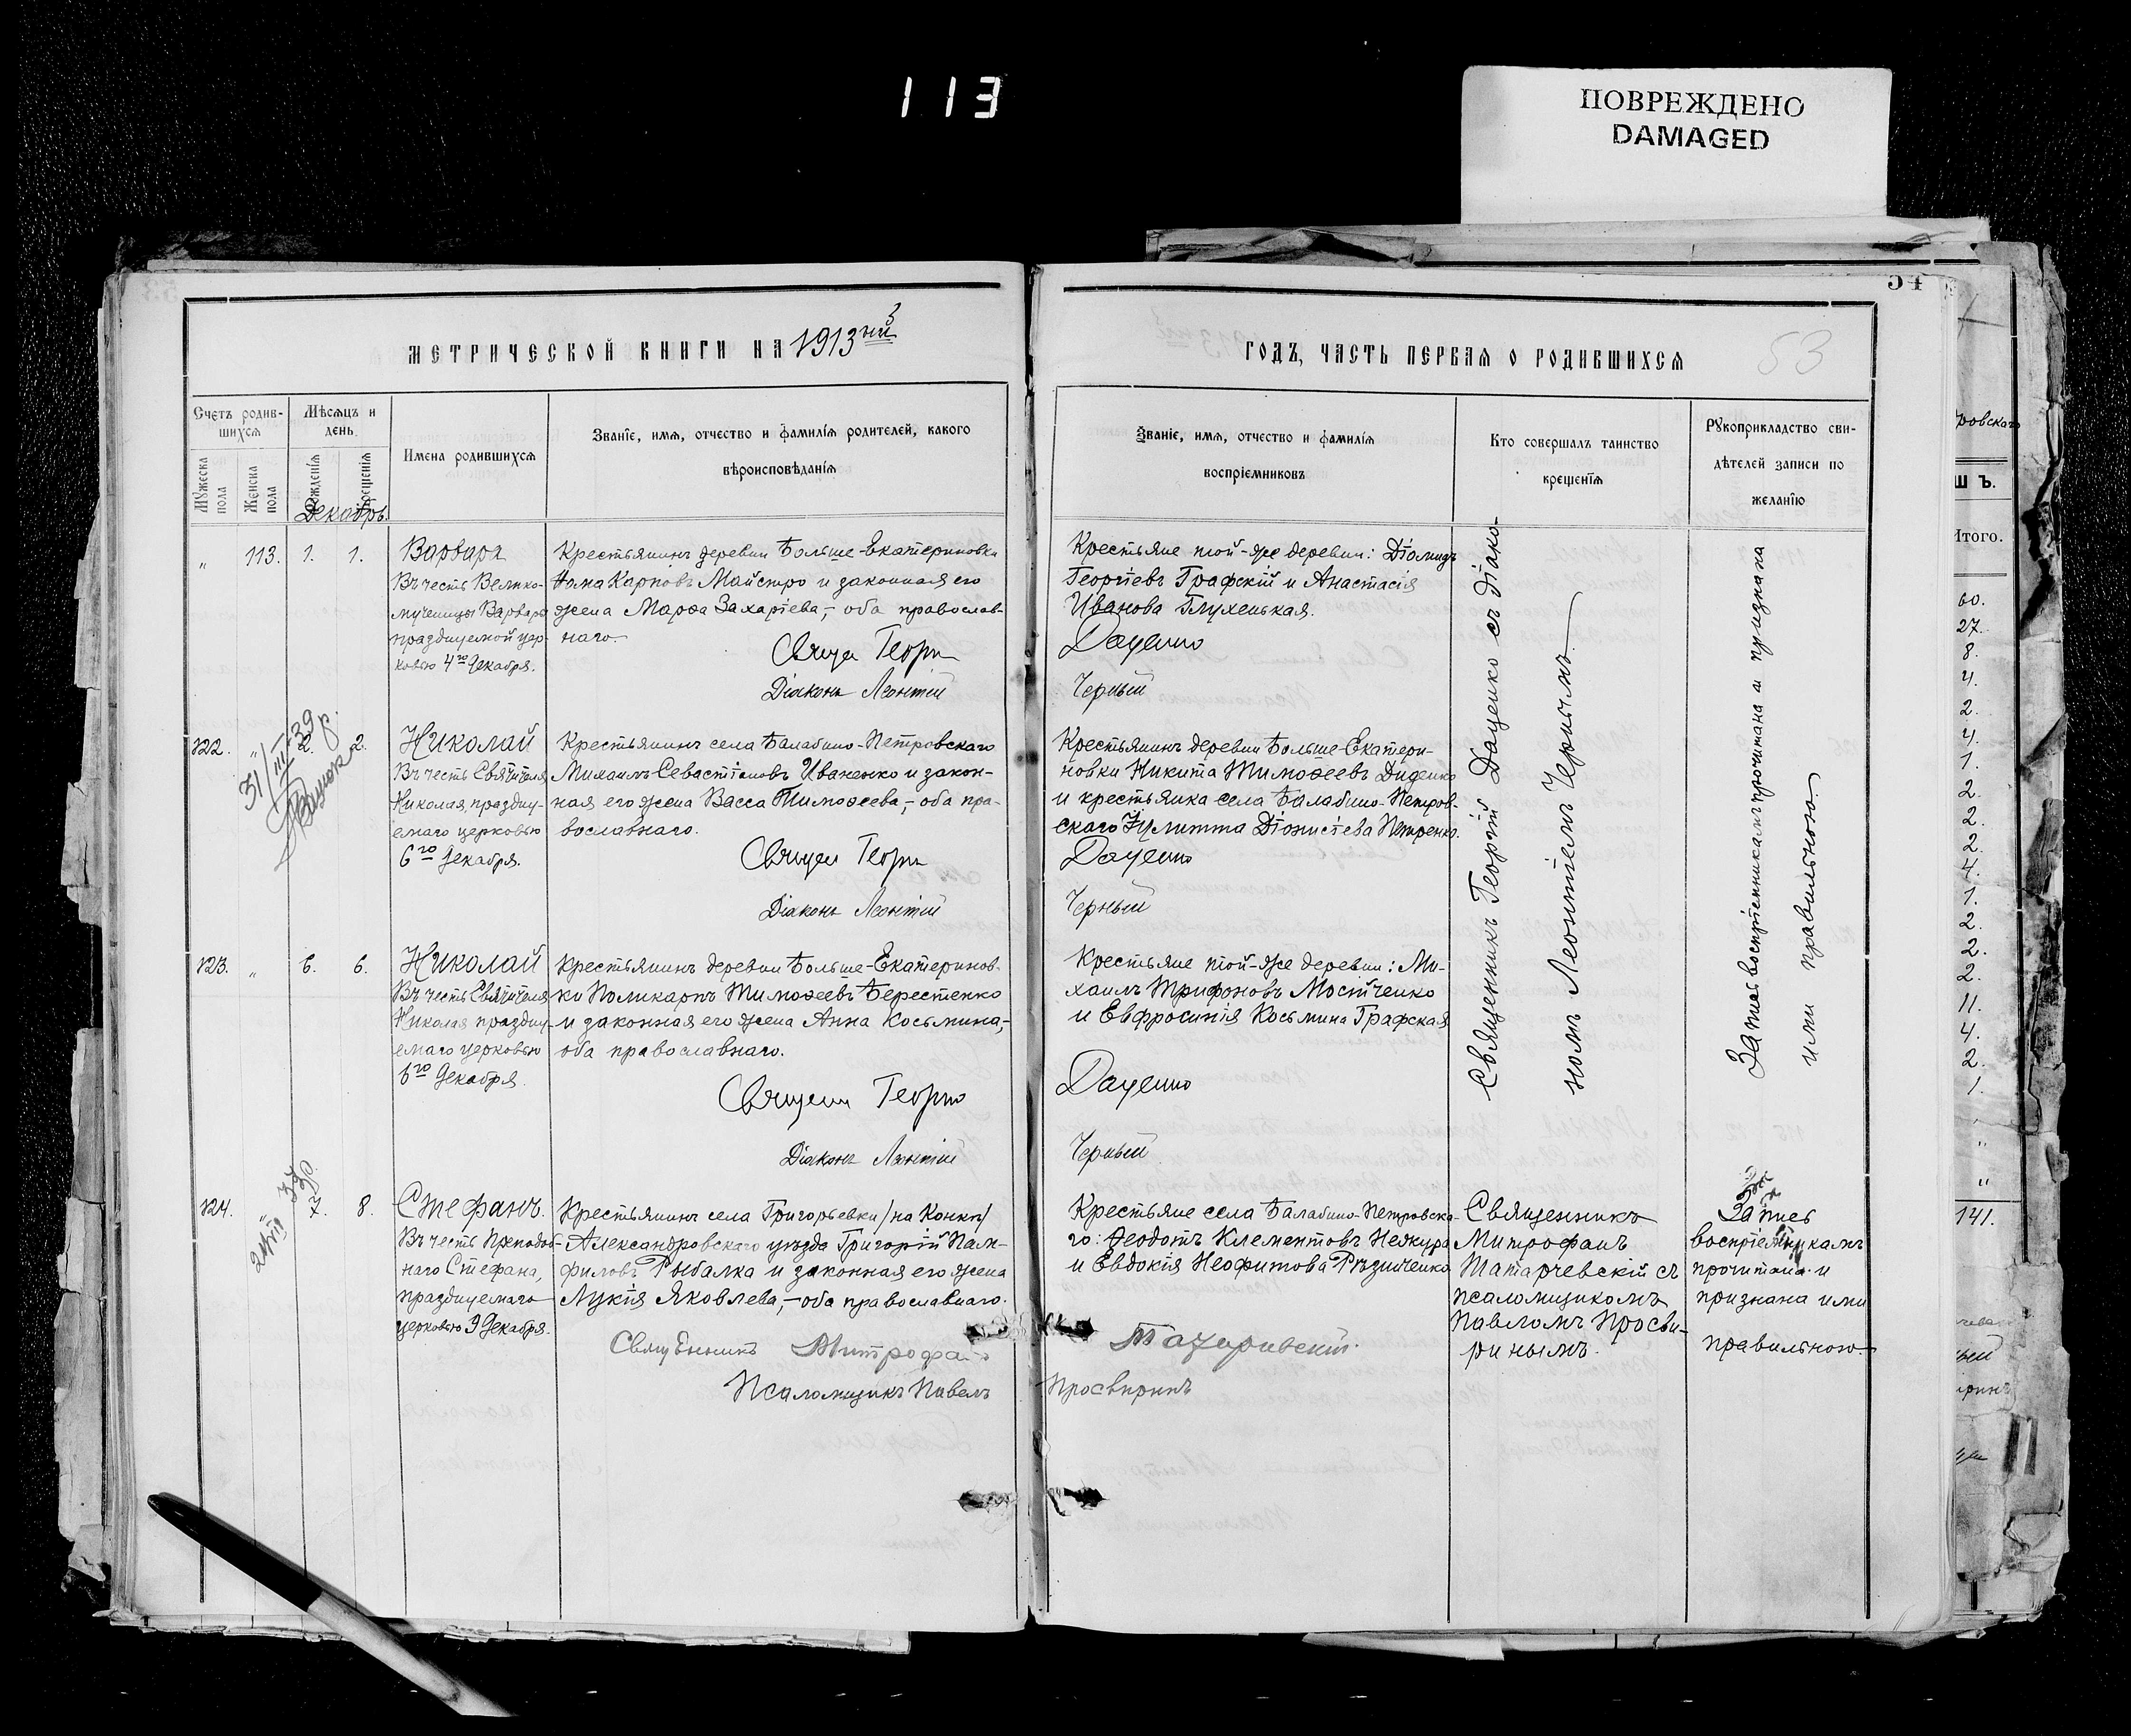 113
ПОВРЕЖДЕНО
DAMAGED
МЕТРИЧЕСКОЙ КНИГИ НА 1913
ГОДЪ, ЧАСТЬ ПЕРВАЯ О РОДИВШИХСЯ
53
Счетъ родив-
шихся
Мѣсяцъ и
день.
Мужеска
пола
Женска
пола
Рожденія
Крещенія
Имена родившихся
Званіе, имя, отчество и фамилія родителей, какого
вѣроисповѣданія
Званіе, имя, отчество и фамилія
воспріемниковъ
Кто совершалъ таинство
крещенія
Рукоприкладство сви-
дѣтелей записи по
желанію
Декабрь.
" 113. 1. 1.
Варвара
Въ честь Велико-
мученицы Варвары
празднуемой цер-
ковью 4го Декабря.
Крестьянинъ деревни Больше-Екатериновки
Ѳома Карповъ Майстро и законная его
жена Марѳа Захаріева,- оба православ-
наго.
Георгій
Діаконъ Леонтій
Крестьяне той-же деревни: Діомидъ
Георгіевъ Графскій и Анастасія
Иванова Глухенькая.
Даценко
Черный
122. " 2. 2.
31/III 39 г.
Николай
Въ честь Святителя
Николая праздну-
емаго церковью
6го Декабря.
Крестьянинъ села Балабино-Петровскаго
Михаилъ Севастіановъ Иваненко и закон-
ная его жена Васса Тимоѳеева,- оба пра-
вославнаго.
Георгій
Діаконъ Леонтій
Крестьянинъ деревни Больше-Екатери-
новки Никита Тимоѳеевъ Диденко
и крестьянка села Балабино-Петров-
скаго Іулитта Діонисіева Петренко.
Даценко
Черный
123. " 6. 6.
Николай
Въ честь Святителя
Николая праздну-
емаго церковью
6го Декабря.
Крестьянинъ деревни Больше-Екатеринов-
ки Поликарпъ Тимоѳеевъ Берестенко
и законная его жена Анна Косьмина,-
оба православнаго.
Георгій
Діаконъ Леонтій
Крестьяне той-же деревни: Ми-
хаилъ Трифоновъ Мостченко
и Евфросинія Косьмина Графская
Даценко
Черный
Священникъ Георгій Даценко съ Діако-
номъ Леонтіемъ Чернымъ.
Запись воспріемникамъ прочитана и признана
ими правильною.
124. " 7. 8.
Стефанъ.
Въ честь Преподоб-
наго Стефана,
празднуемаго
церковью 9 Декабря.
Крестьянинъ села Григорьевки /на Конкѣ/
Александровскаго уѣзда Григорій Пам-
филовъ Рыбалка и законная его жена
Лукія Яковлева,- оба православнаго.
Священникъ Митрофанъ
Псаломщикъ Павелъ
Крестьяне села Балабино-Петровска-
го: Ѳеодотъ Клементовъ Нежура
и Евдокія Неофитова Рѣзниченко
Татарчевскій
Просвиринъ
Священникъ
Митрофанъ
Татарчевскій съ
псаломщикомъ
Павломъ Просви-
ринымъ.
Запись
воспріемникамъ
прочитана и
признана ими
правильною.
ровскаго
Ш Ъ.
Итого.
60.
27.
8.
4.
2.
4.
1.
2.
2.
2.
4.
1.
2.
2.
2.
11.
4.
2.
1.
"
"
141.